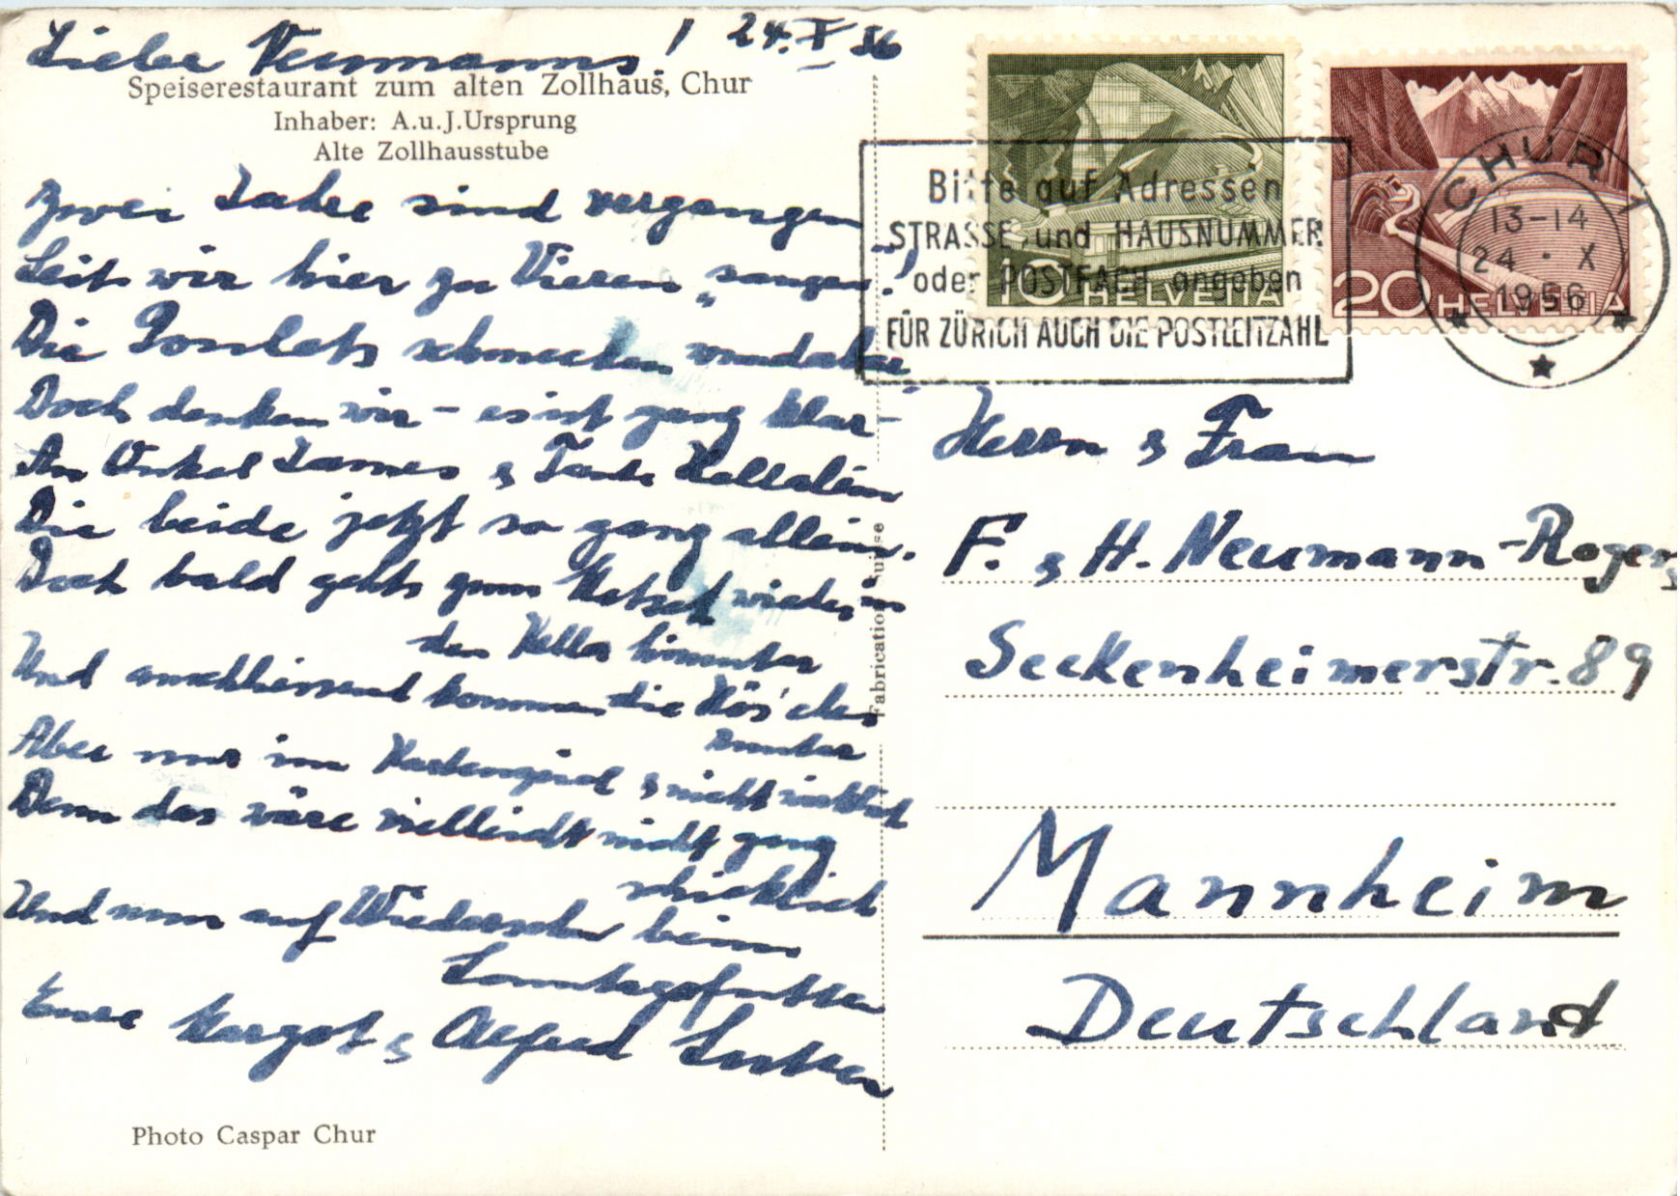 Liebe Neumanns! 24. X 56
Speiserestaurant zum alten Zollhaus, Chur
Inhaber: A.u.J.Ursprung
Alte Zollhausstube
Zwei Jahre sind vergangen
Seit wir hier zu Vieren „sangen“!
Die Gouletts schmecken wundabar,
Doch denken wir – es ist ganz klar –
An Onkel James & Tante
Die beide jetzt so ganz allein.
Doch bald gehts zum wieder in
den Keller hinunter
Und anschliessend kommen die Kös' chen
runter
Aber nur im Kartenspiel & nicht wirklich
Denn das wäre vielleicht nicht ganz
schicklich
Und nun auf Wiedersehn beim
Sonntagsfutter
Eure Margot & Alfred
Photo Caspar Chur
Fabrication suisse
10 HELVETIA
20 HELVETIA
Bitte auf Adressen
STRASSE und HAUSNUMMER
oder POSTFACH angeben
FÜR ZÜRICH AUCH DIE POSTLEITZAHL
CHUR 1
13–14
24 · X
1956
Herrn & Frau
F. & H. Neumann-Rogers
Seckenheimerstr. 89
Mannheim
Deutschland